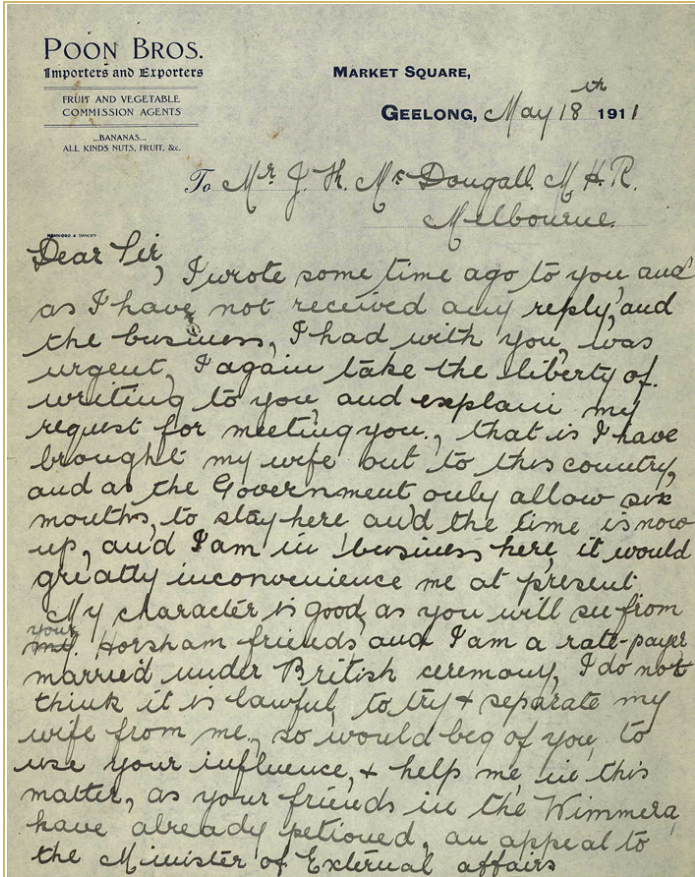 POON BROS.
Importers and Exporters
FRUIT AND VEGETABLE
COMMISSION AGENTS
...BANANAS...
ALL KINDS NUTS, FRUIT, &c.
MARKET SQUARE,
GEELONG, May 18th 1911
To Mr J. K. Mc Dougall. M. H. R.
Melbourne.
Dear Sir,
I wrote some time ago to you and
as I have not received any reply, and
the business, I had with you, was
urgent, I again take the liberty of.
writing to you, and explain my
request for meeting you., that is I have
brought my wife out to this country,
and as the Government only allow six
months, to stay here and the time is now
up, and I am in business here, it would
greatly inconvenience me at present.
My character is good, as you will see from
your Horsham friends and I am a rate-payer
married under British ceremony, I do not
think it is lawful, to try & separate my
wife from me., so would beg of you, to
use your influence, & help me, in this
matter, as your friends in the Wimmera,
have already petioned, an appeal to
the Minister of External affairs